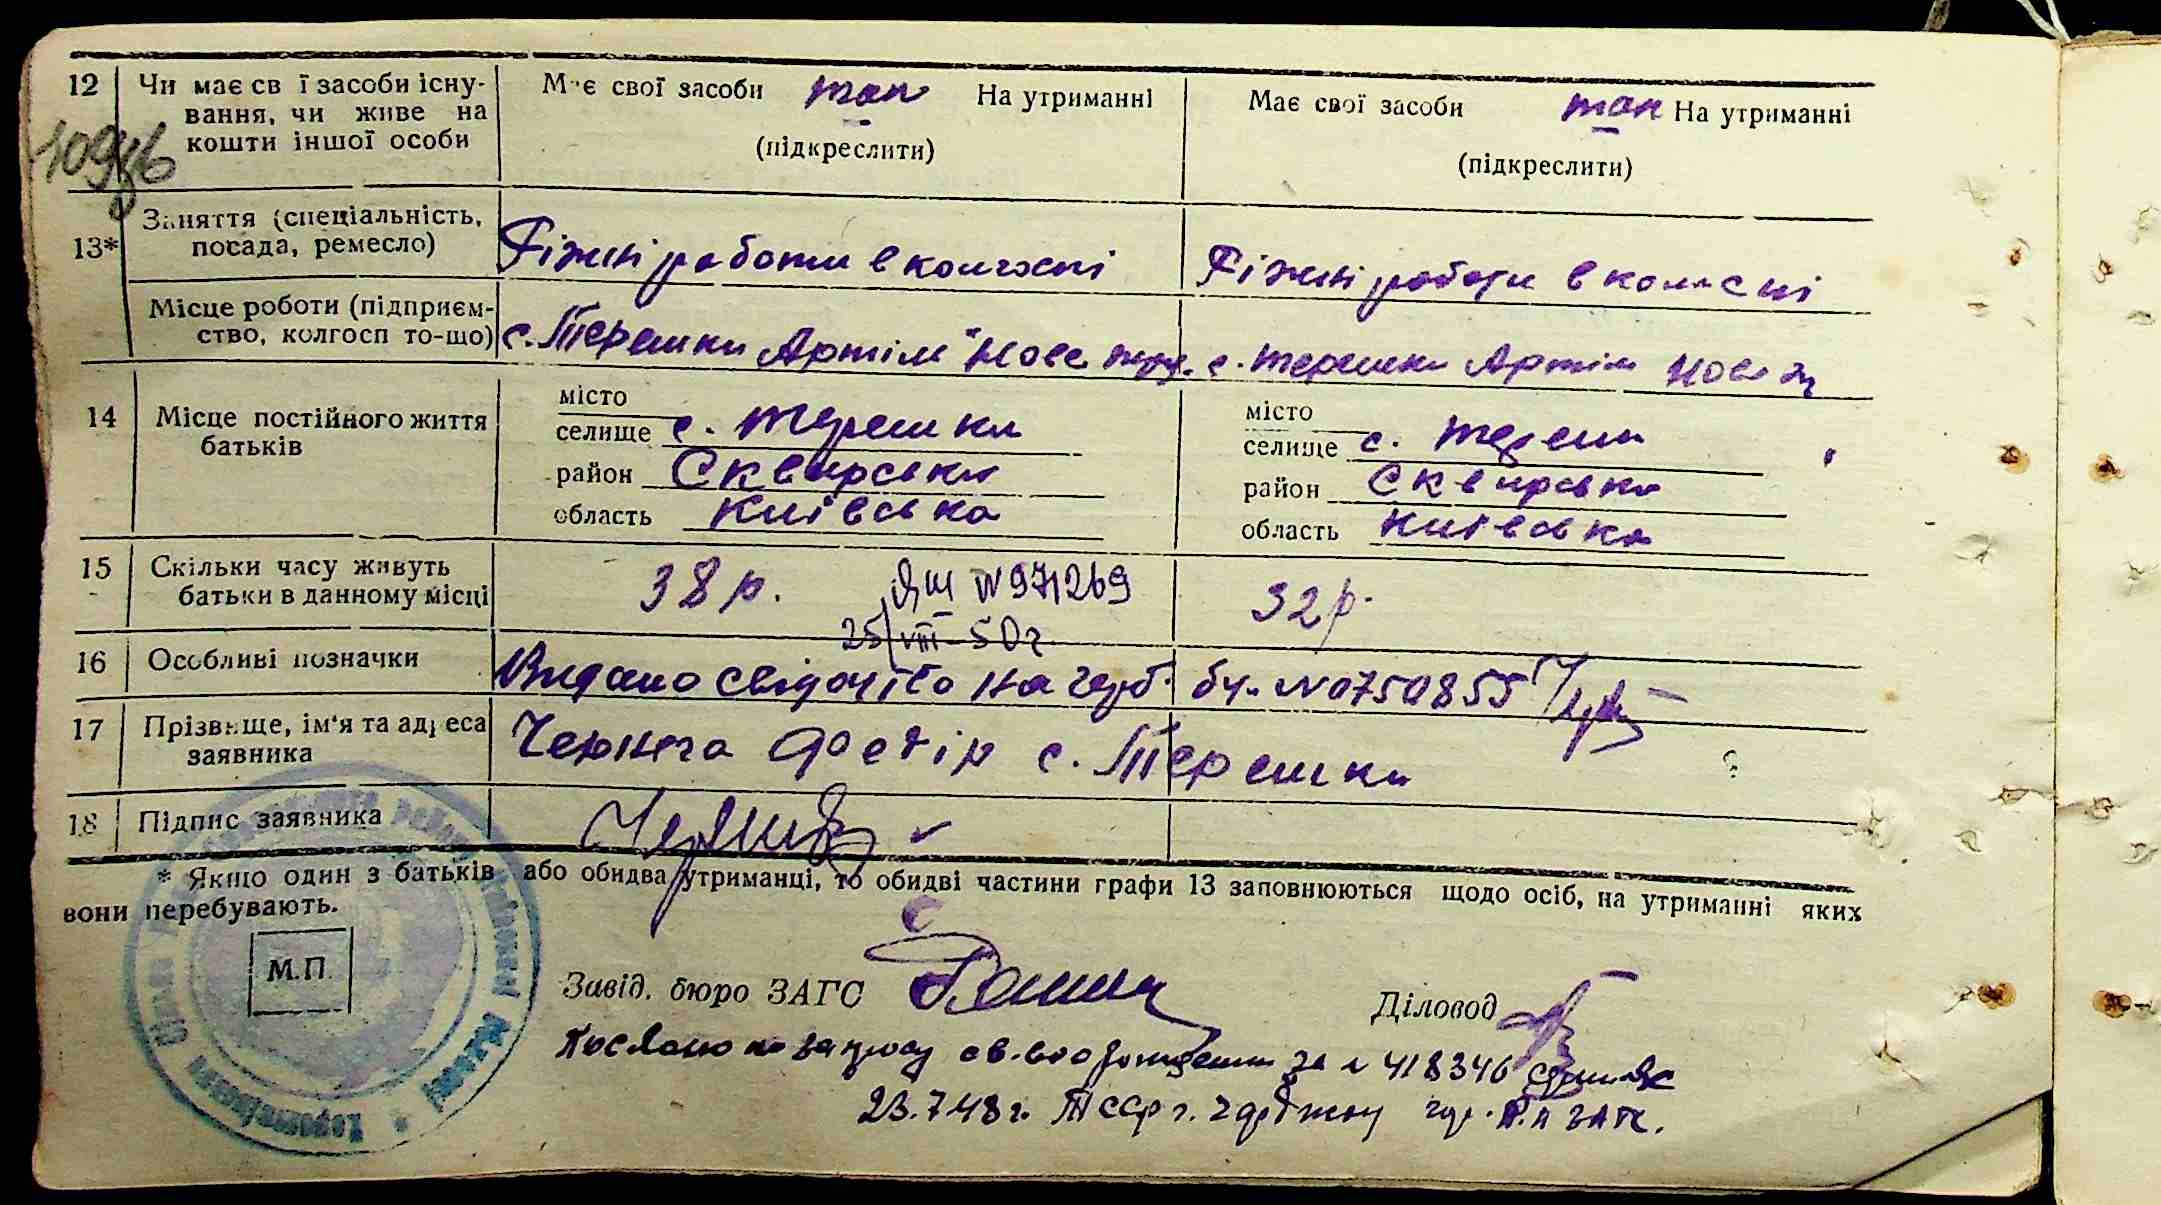 12 Чи має св ї засоби існу- М є свої засоби так На утриманні Має свої засоби так На утриманні
вання, чи живе на
кошти іншої особи (підкреслити) (підкреслити)
13* Заняття (спеціальність,
посада, ремесло) Ріжні роботи в колгоспі Ріжні роботи в колгоспі
Місце роботи (підприєм-
ство, колгосп то-що) с. Терешки Артіль "Нове с. Терешки Артіль Нове
14 Місце постійного життя
батьків
місто місто
селище с. Терешки селище с. Терешки
район Сквирськи район Сквирськи
область Київська область Київська
15 Скільки часу живуть
батьки в данному місці 38 р. ЯШ N 971269 32 р.
25/VIII-50 г
16 Особливі позначки Видано свідоцтво на руб. N 0750855
17 Прізвище, ім'я та адреса
заявника с. Терешки
18 Підпис заявника
* Якщо один з батьків або обидва утриманці, то обидві частини графи 13 заповнюються щодо осіб, на утриманні яких
вони перебувають.
М.П.
Завід. бюро ЗАГС Діловод
Послано по запросу св-во о рождении за N 418346
23.7.48 г. ЗАГС.